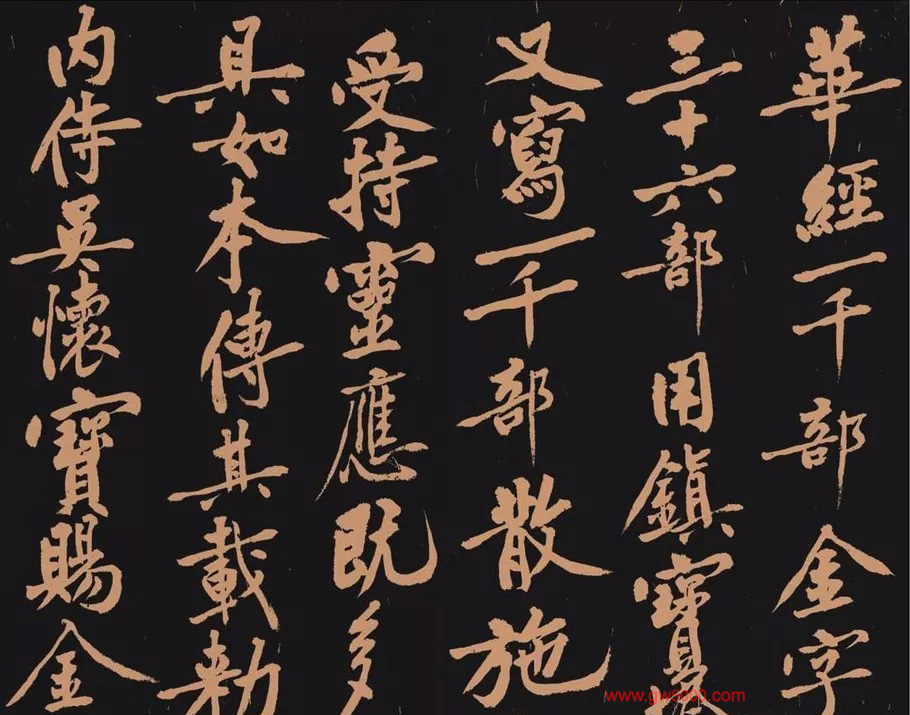 華經一千部金字
三十六部用鎮寶
又寫一千部散施
受持靈應既多
具如本傳其載勅
内侍吳懷寶賜金
www.gw5000.com